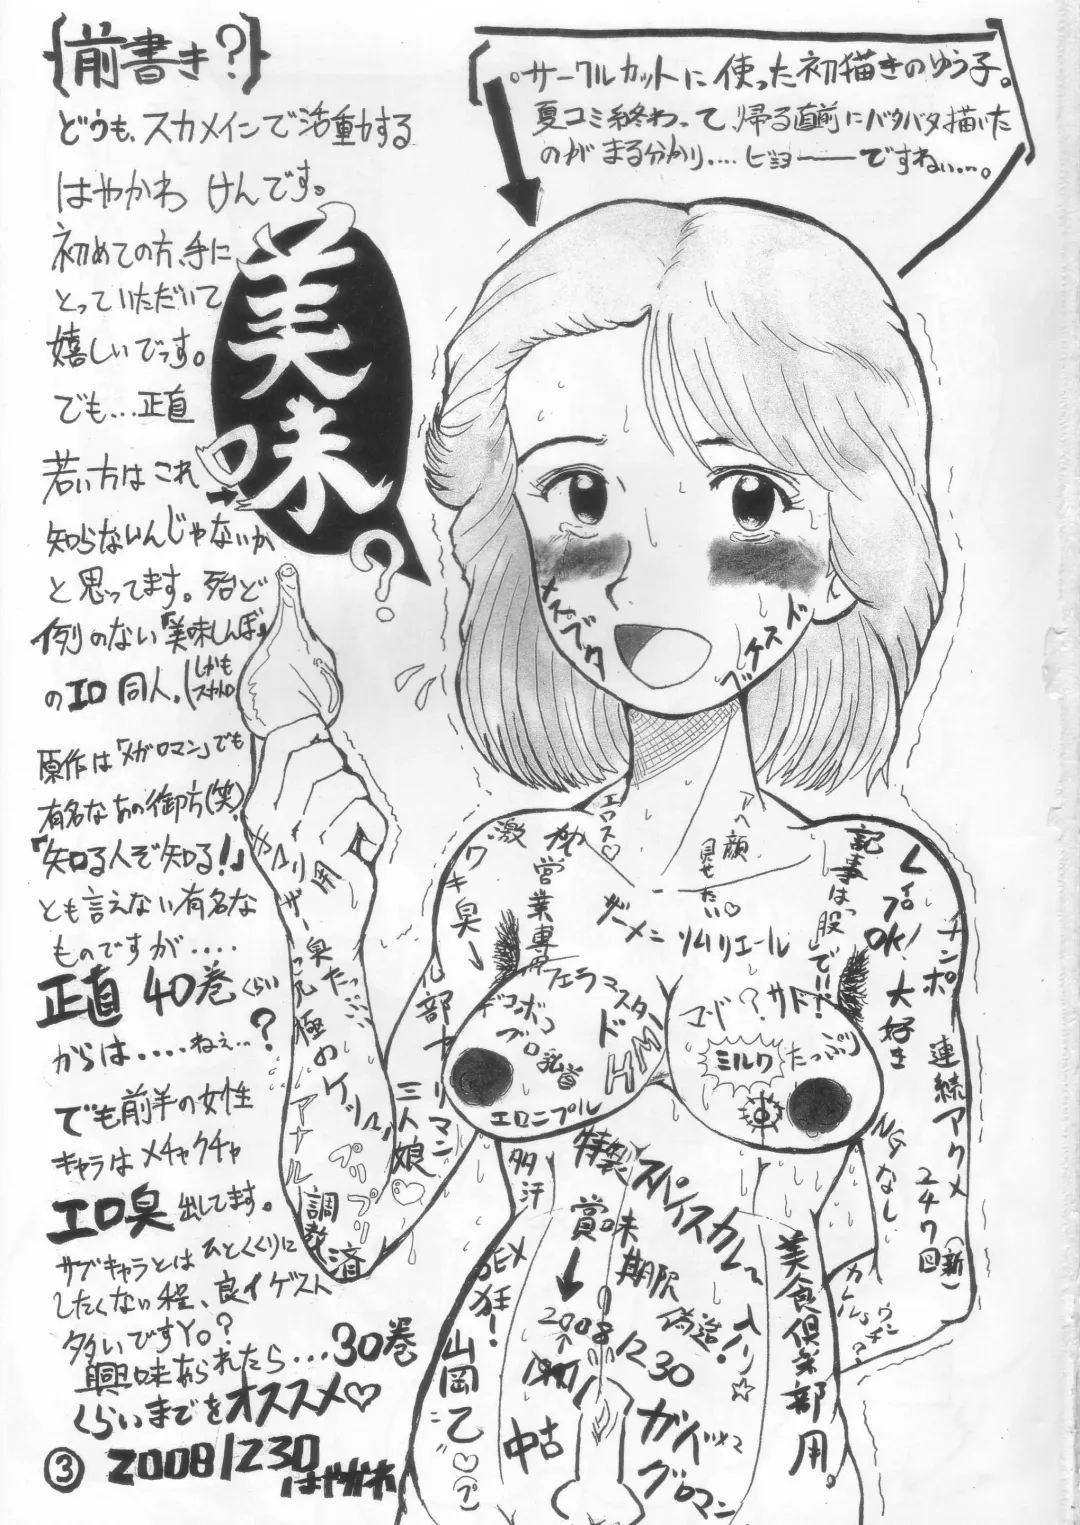 {前書き?}
どうも、スカメインで活動する
はやかわ けんです。
初めての方、手に
とっていただいて
嬉しいでっす。
でも…正直
若い方はこれ
知らないんじゃないか
と思ってます。殆ど
例のない『美味しんぼ』
のエロ同人。(しかも
スカトロ
原作は「メガロマン」でも
有名なあの御方(笑)
『知る人ぞ知る!』
とも言えない有名な
ものですが‥‥
正直 40巻くらい
からは‥‥ねぇ…?
でも前半の女性
キャラはメチャクチャ
エロ臭出してます。
サブキャラとはひとくくりに
したくない程、良イゲスト
多いですYo?
興味あられたら…30巻
くらいまでをオススメ♡
③ 2008/1230
はやかわ
美味?
。サークルカットに使った初描きのゆう子。
夏コミ終わって、帰る直前にバタバタ描いた
のがまる分かり‥‥ビミョーーですねぃ…。
メスブタ
ドスケベ
エロス♡
アヘ顔
見せたい♡
激
ワキ臭→
営業専用
ザーメン
ソムリエール
記事は「股」で!!
レイプOK!大好き
チンポ
連続アクメ
247回
(新)
NGなし
フェラマスター
デコボコ
エロ乳首
ドHM
マゾ?サド!
ミルクたっぷり
エロニプル
三人娘
多汗
特製スパイスカレー入り!☆
賞味
期限
偽造!
2008/1230
1997
SEX狂!
山岡乙
♡
中古
ガバガバ
グロマン
美食倶楽部用。
カレー
ウンチ?
アナル
調教済
プリプリ